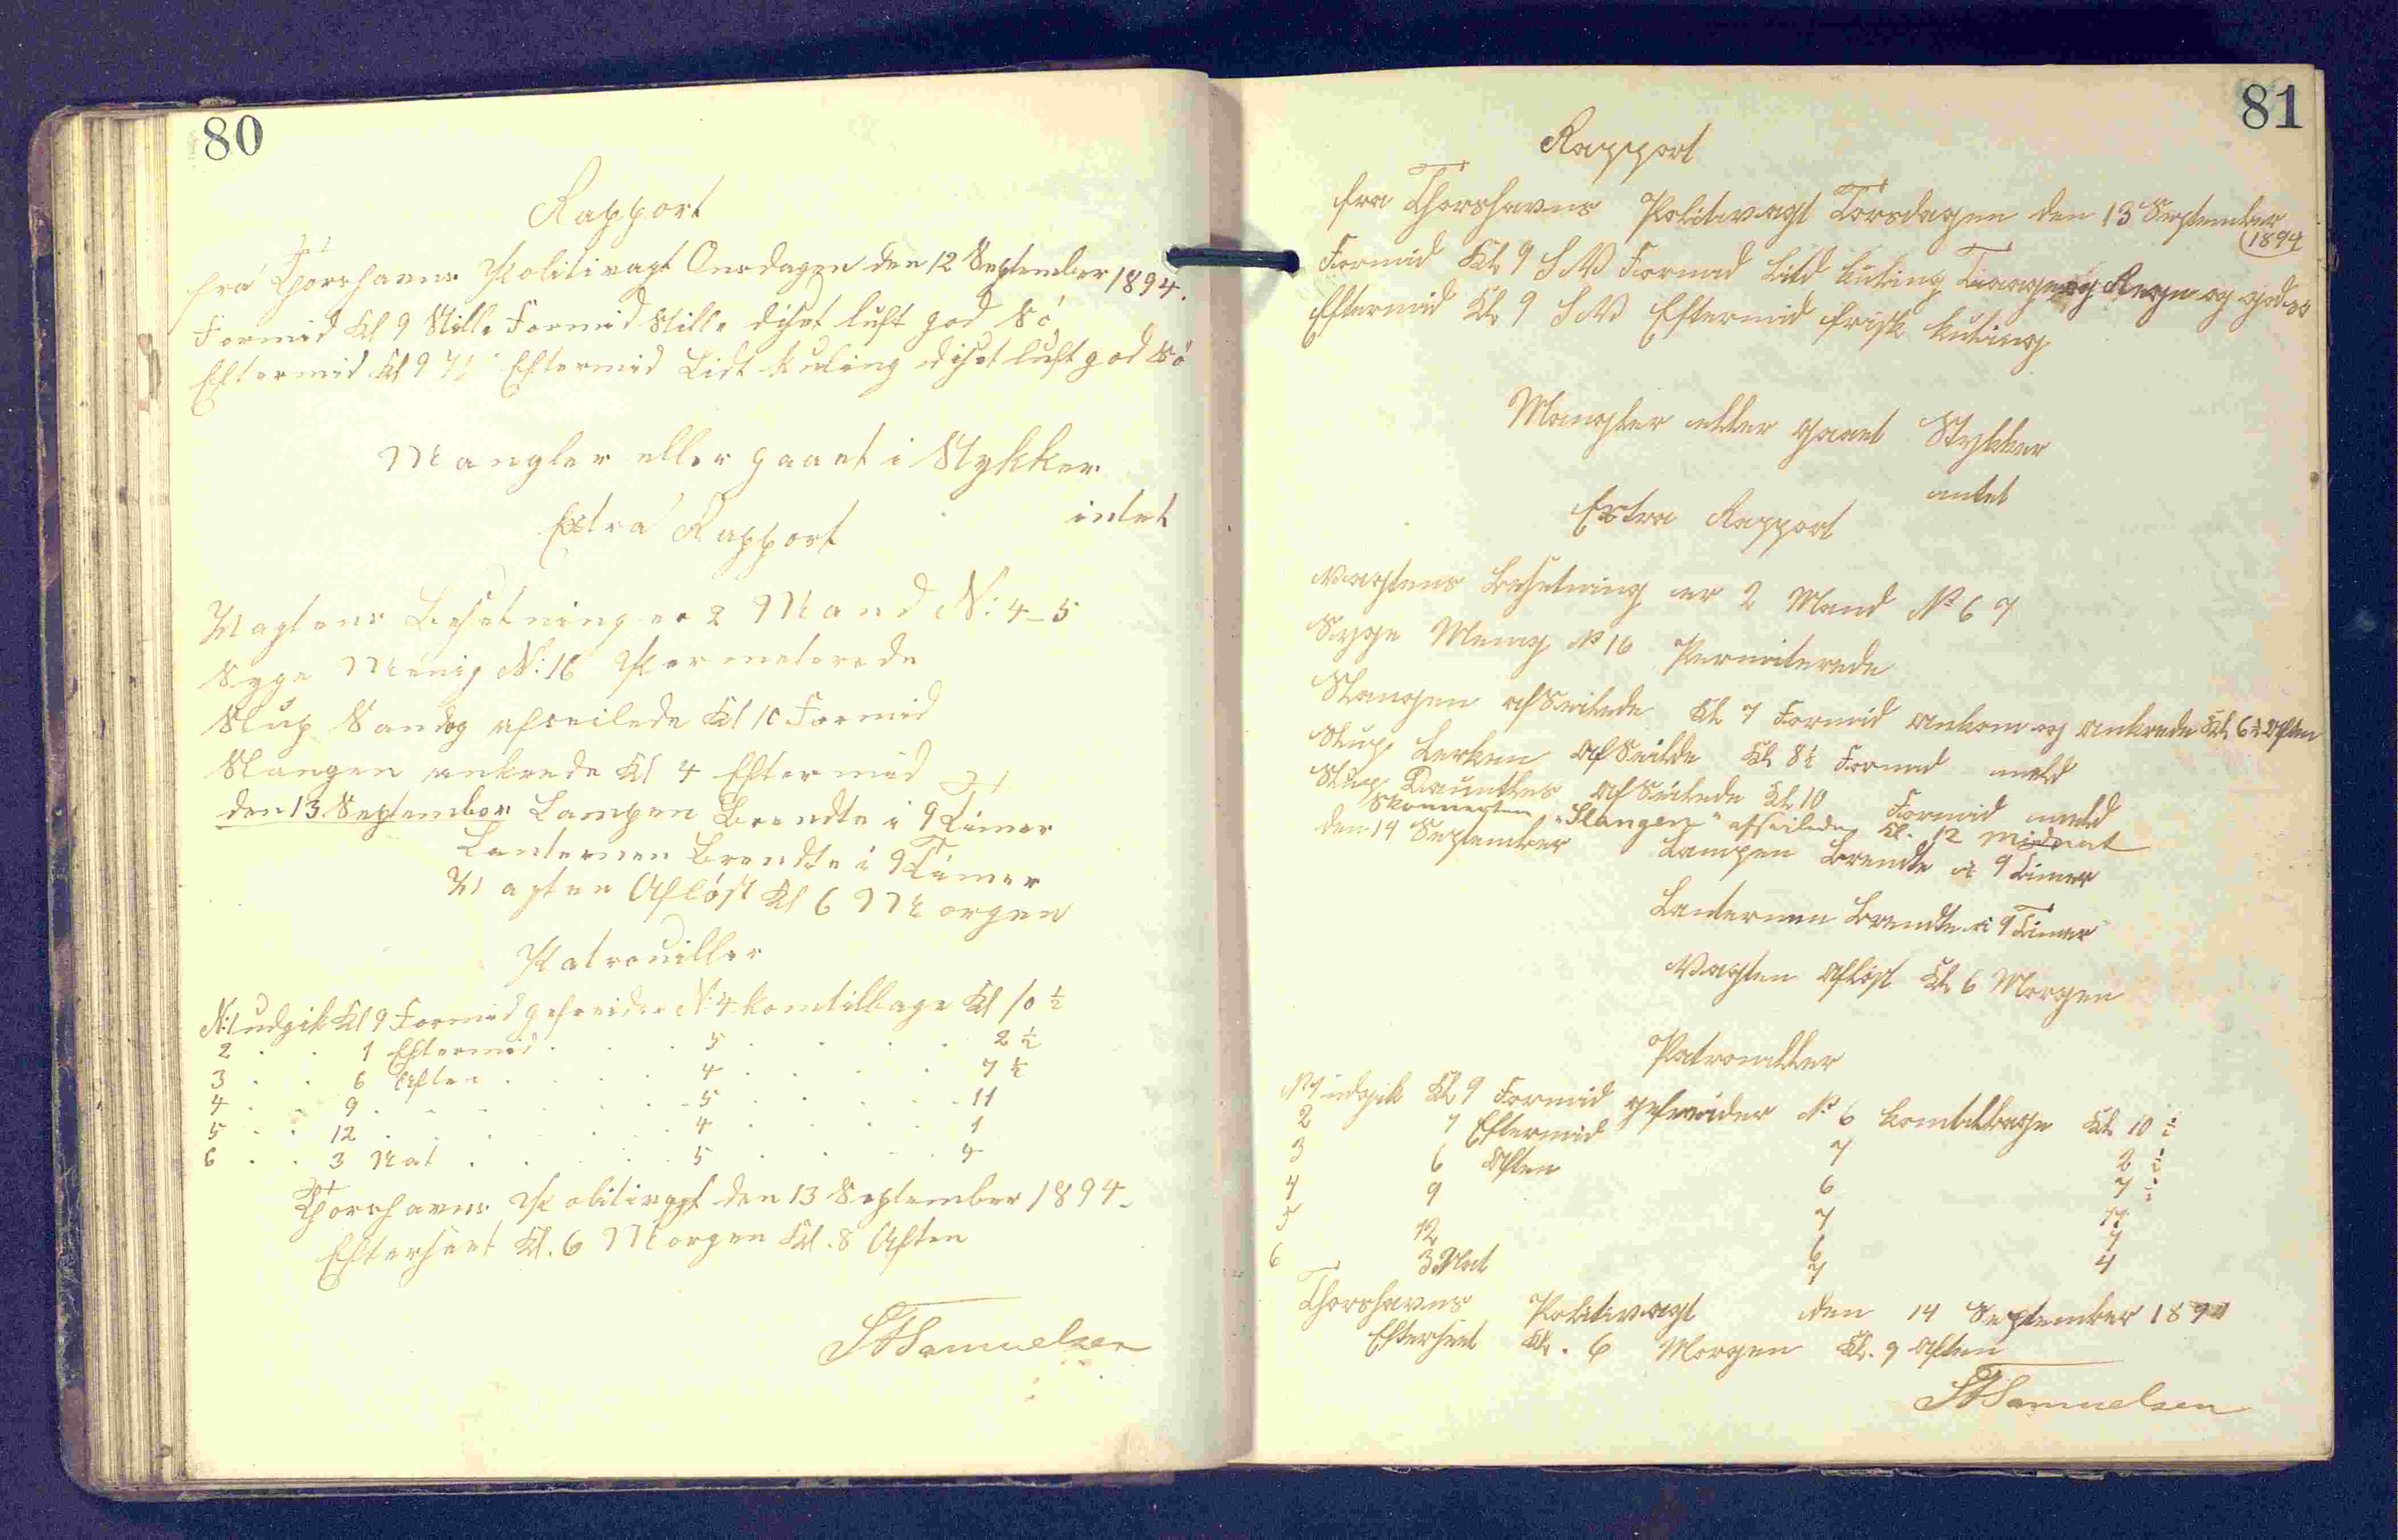 80
Rapport
fra Thorshavns Politivagt Onsdagen den 12 September 1894.
Formid Kl 9 Stille Formid Stille diset luft god Sö
Eftermid Kl 9 Eftermid Lidt kuling diset luft god Sö
Mangler eller gaaet i Stykker
intet
Extra Rapport
Vagtens Besetning er 2 Mand N: 4-5
Syge Menig N: 16 Permeterede
Slup Sandog afseilede Kl 10 Formid
Slangen ankrede Kl 4 Eftermid
den 13 September Lampen Brendte i 9 Timer
Lanternen Brendte i 9 Timer
Vagten Aflöst Kl 6 Morgen
Patrouiller
N: 1 udgik Kl 9 Formid gefreider N: 4 kom tilbage Kl 10 ½
2 . . 1 Eftermid . . . 5 . . . . 2 ½
3 . . 6 Aften . . . . 4 . . . . 7 ½
4 . . 9 . . . . . . 5 . . . . 11
5 . . 12 . . . . . . 4 . . . . 1
6 . . 3 Nat . . . . 5 . . . . 4
Thorshavns Politivagt den 13 September 1894-
Efterseet Kl. 6 Morgen Kl. 8 Aften
Samuelsen
81
Rapport
fra Thorshavns Politivagt Torsdagen den 13 September
1894
Formid Kl 9 S V Formid Lidt kuling Taage og Regn og god sö
Eftermid Kl 9 S V Eftermid frisk kuling
Mangler eller gaaet Stykker
intet
Extra Rapport
Vagtens Besetning er 2 Mand No 6 7
Syge Menig No 16 Permiterede
Slangen afseilede Kl 7 Formid Ankom og Ankrede Kl 6 ½ Aften
Slup Lerken Afseilde Kl 8 ½ Formid
Slup Dauntles Afseilede Kl 10 Formid
Skonnerten "Slangen" afseilede Kl. 12 Midnat
den 14 September Lampen Brendte i 9 Timer
Lanternen Brendte i 9 Timer
Vagten Aflöst Kl 6 Morgen
Patrouiller
No 1 udgik Kl 9 Formid gefreider No 6 kom tilbage Kl 10 ½
2 1 Eftermid 7 2 ½
3 6 Aften 6 7 ½
4 9 7 11
5 12 6 1
6 3 Nat 7 4
Thorshavns Politivagt den 14 September 1894
Efterseet Kl. 6 Morgen Kl. 9 Aften
Samuelsen